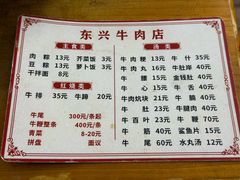 东兴牛肉店
主食类
肉粽 13元 芥菜饭 3元
豆粽 13元 萝卜饭 3元
干拌面 8元
红烧类
牛排 35元 牛腩 20元
牛尾 300元/条起
牛鞭整条 400元/条
青菜 8-20元
拼盘 面议
汤类
牛肉粳 13元 牛什 35元
牛肉丸 13元 牛肚 40元
牛腰 15元 金钱肚 40元
牛心 15元 牛舌 40元
牛肉炕块 15元 牛腩 40元
牛大肠 15元 牛腱肉 40元
牛百叶 23元 牛鞭 70元
牛筋 40元 鲨鱼片 15元
牛尾 60元 水丸汤 12元